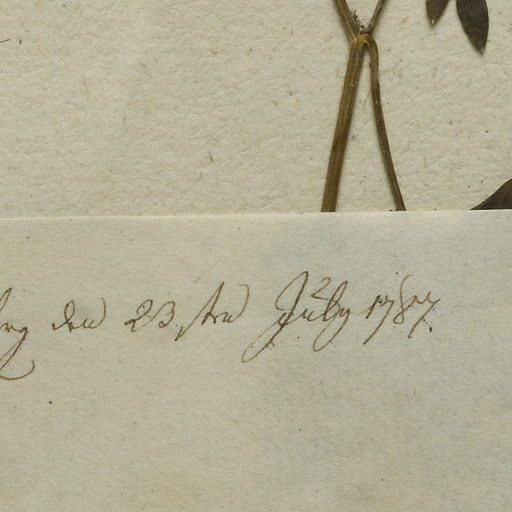 den 23sten July 1787.